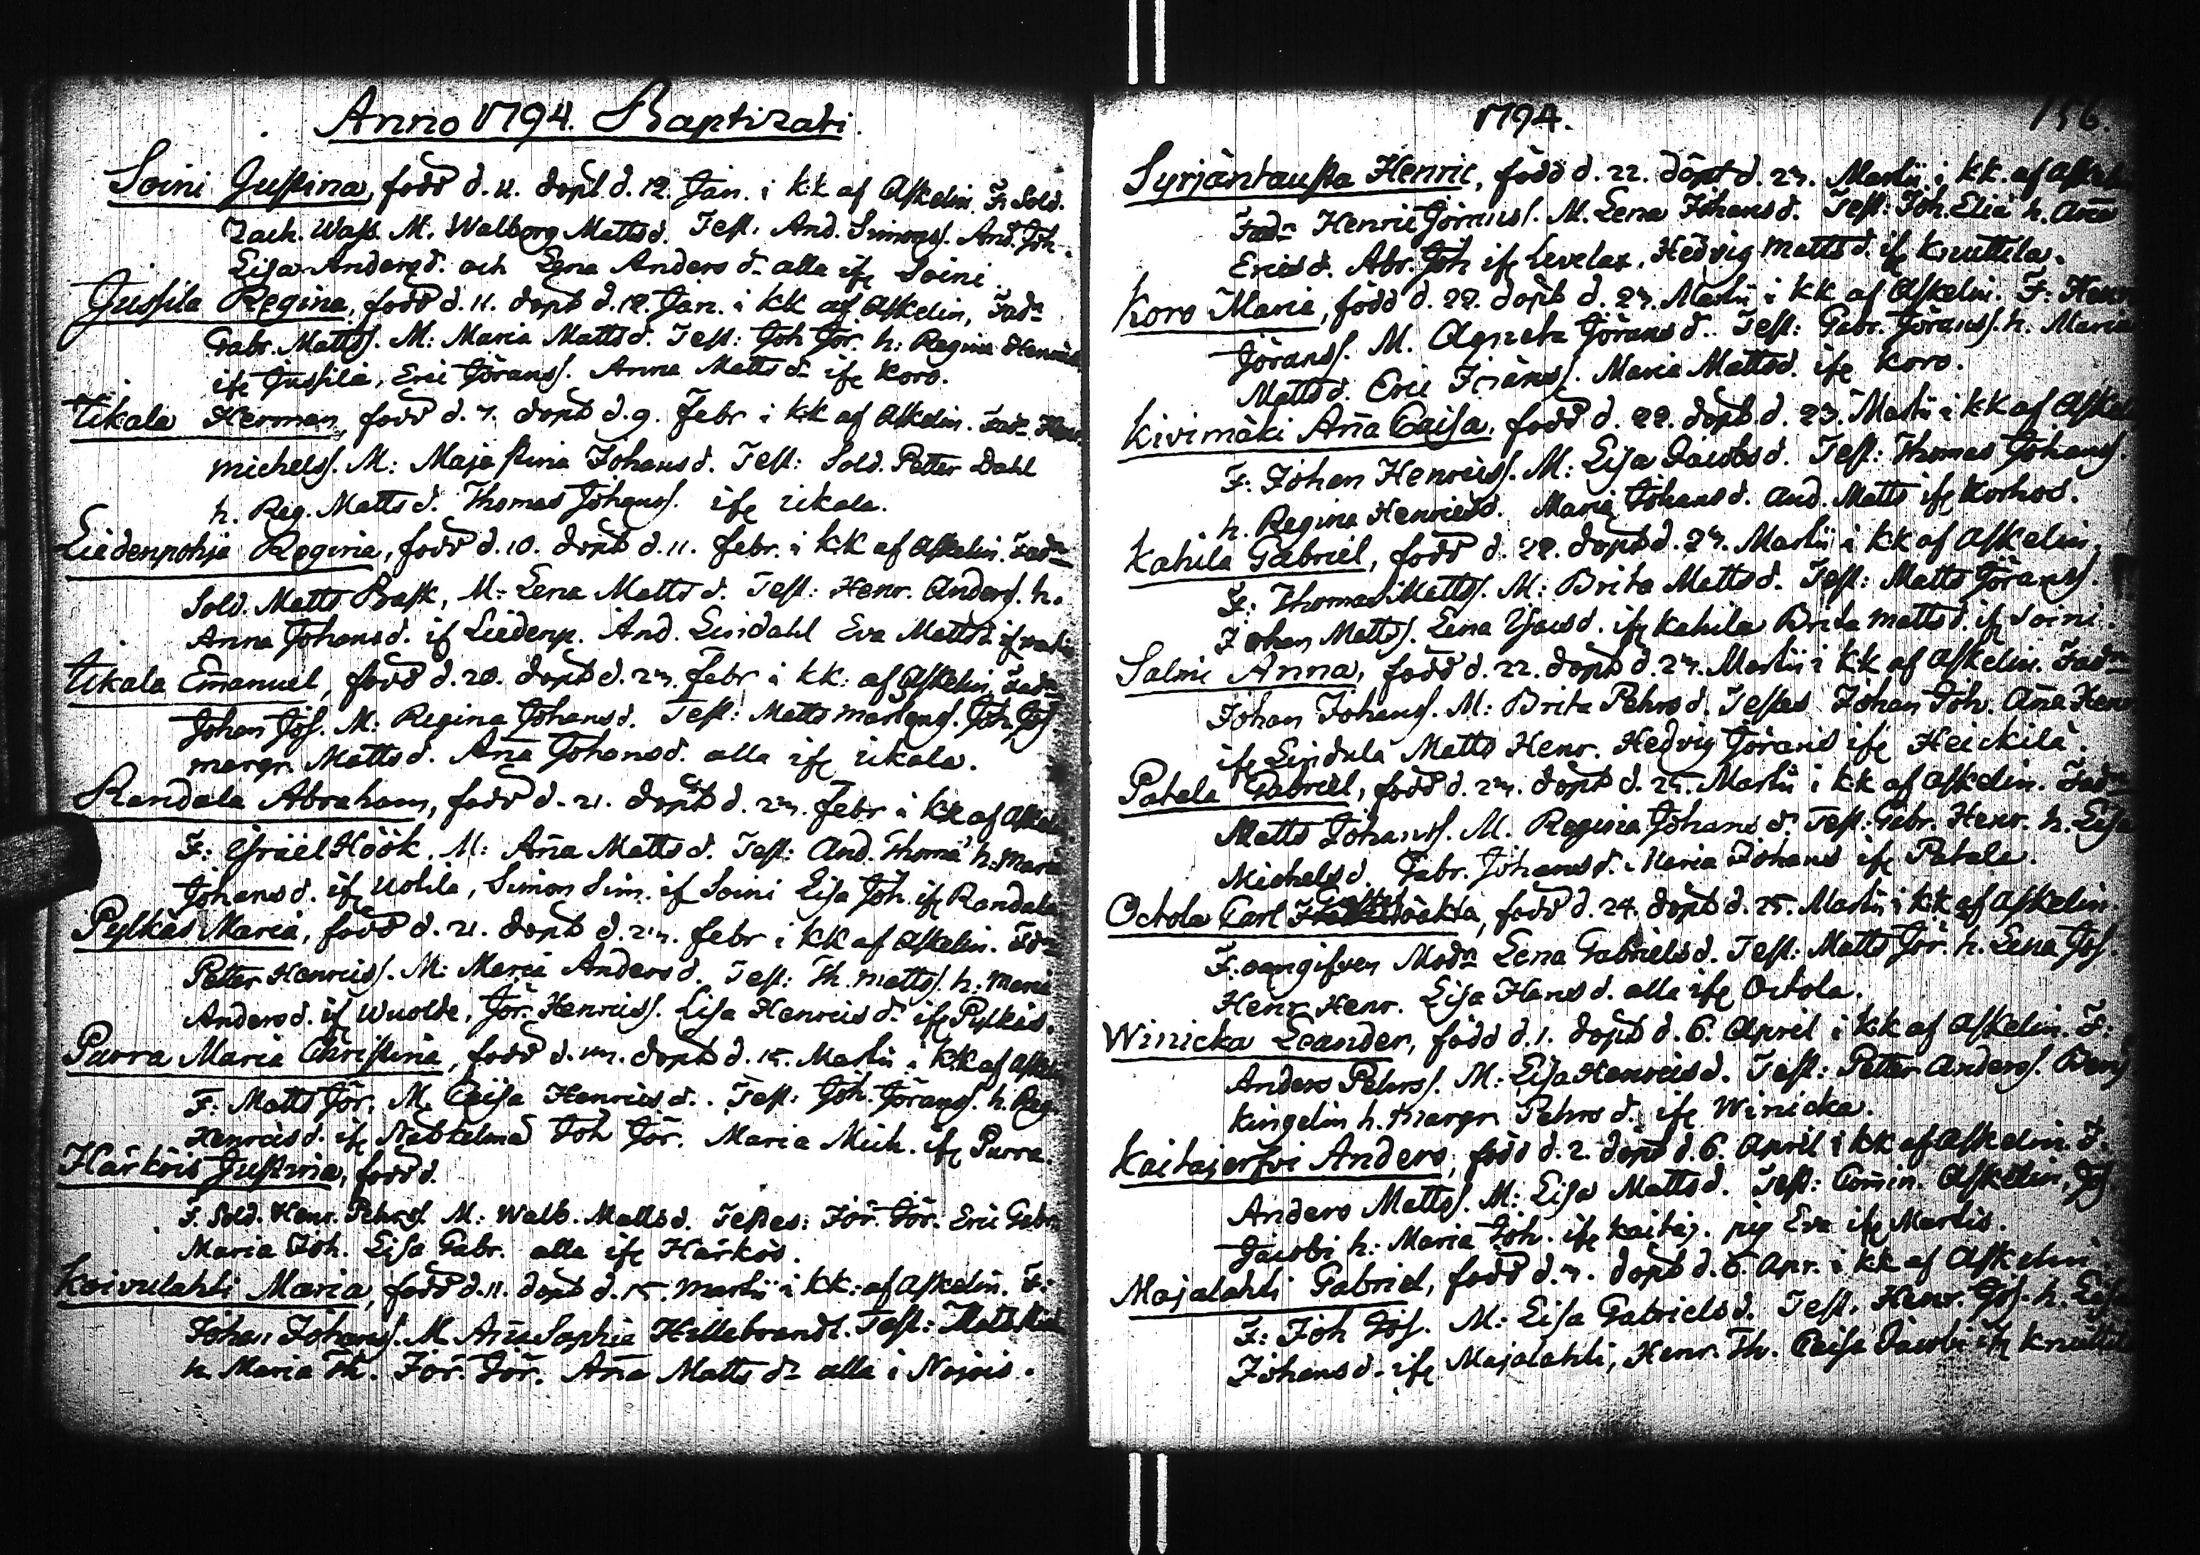 Anno 1794. Baptizati.
Soini Justina, född d. 11. döpt d. 12. Jan. i KK af Askelin. F. Sold.
Zach. Wass. M. Walborg Mattsd. Test. And. Simonss. And. Joh.
Lisa Andersd. och Lena Andersd. alla ifr Soini.
Jussila Regina, född d. 11. döpt d. 12. Jan. i KK af Askelin, Fadn
Gabr. Mattss. M: Maria Mattsd. Test: Joh Jör. h: Regina Henricsd
ifr Jussila, Eric Jöranss. Anna Mattsd. ifr Koro.
Ukala Herman, född d. 7. döpt d. 9. Febr i KK af Askelin. Fadn Henr.
Michelss. M: Maja Stina Johansd. Test: Sold. Petter Dahl
h. Reg. Mattsd. Thomas Johanss. ifr Ukala.
Liedenpohja Regina, född d. 10. döpt d. 11. Febr. i KK af Askelin. Fadn
Sold. Matts Bask, M: Lena Mattsd. Test: Henr. Anderss. h.
Anna Johansd. if Liedenp. And. Lindahl Eva Mattsd.
Ukala Emanuel, född d. 20. döpt d. 23. Febr i KK: af Askelin, Fadn
Johan Jös. M: Regina Johansd. Test: Matts Martenss. Joh Jos
margr. Mattsd. Ana Johansd. alla ifr Ukala.
Randala Abraham, född d. 21. döpt d. 23. Febr i KK af Askelin
F: Israel Höök. M: Ana Mattsd. Test: And. Thomæ h: Maria
Johansd. ifr Uotila, Simon Sim. if Soini Lisa Joh. ifr Randala
Pylkäs Maria, född d. 21. döpt d. 23. Febr i KK af Askelin. Fdn
Petter Henricss. M: Maria Andersd. Test: Th. Mattss. h: Maria
Andersd. ifr Wuolde, Jör. Henricss. Lisa Henricsd. ifr Pylkäs.
Purra Maria Christina, född d. 13. döpt d. 15. Martii i KK af Askelin
F: Matts Jör. M. Caisa Henricsd. Test: Joh. Jöranss. h. Reg.
Henricsd. ifr Joh Jör. Maria Mich. ifr Purra.
Härköis Justina, född d.
F. Sold. Henr. Pehrs. M: Walb. Mattsd. Testes: Jör. Jör. Eric Gabr.
Maria Joh. Lisa Gabr. alla ifr Härkös.
Koivulahti Maria, född d. 11. döpt d. 15. Martii i KK: af Askelin. F:
Johan Johanss. M. Ana Sophia Hillebrandt. Test: Matts Mich
h. Maria Th. Jör. Jör. Ana Mattsd. alla i Nisois.
1794. 156.
Syrjäntausta Henric, född d. 22. döpt d. 23. Martii i KK. af Askelin
Fadn Henric Jöranss. M. Lena Johansd. Test: Joh. Eliæ h. Ana
Ericsd. Abr. Joh ifr Levelax. Hedvig Mattsd. ifr Knuttila.
Koro Maria, född d. 22. döpt d. 23. Martii i KK af Askelin. F: Henr
Jöranss. M. Agneta Jöransd. Test: Gabr. Jöranss. h. Maria
Mattsd. Eric Jöranss. Maria Mattsd. ifr Koro.
Kivimäki Ana Caisa, född d. 22. döpt d. 23. Martii i KK af Askelin
F: Johan Henricss. M: Lisa Jacobsd. Test: Thomas Johanss.
h. Regina Henricsd. Maria Johansd. And. Matts ifr Korhos.
Kahila Gabriel, född d. 22. döpt d. 23. Martii i KK af Askelin,
F: Thomas Mattss. M: Brita Mattsd. Test: Matts Jöranss.
Johan Mattss. Lena Isacsd. ifr Kahila Brita Mattsd. ifr Soini.
Salmi Anna, född d. 22. döpt d. 23. Martii i KK af Askelin. Fadn
Johan Johanss. M: Brita Pehrsd. Testes Johan Joh. Ana Henr
ifr Lindula Matts Henr. Hedvig Jörans ifr Heickilä.
Patala Gabriel, född d. 23. döpt d. 25. Martii i KK af Askelin. Fadn
Matts Johanss. M. Regina Johansd. Test: Gabr. Henr. h. Lisa
Michelsd. Gabr. Johansd. Maria Johans ifr Patala.
Octola Carl Gustaf oäkta, född d. 24. döpt d. 25. Martii i KK af Askelin.
F. oangifven Modn Lena Gabrielsd. Test: Matts Jör. h. Lena Jos.
Henr Henr. Lisa Hansd. alla ifr Octola.
Winicka Leander, född d. 1. döpt d. 6. April i KK af Askelin. F:
Anders Pehrss. M: Lisa Henricsd. Test: Petter Anderss. Benj
Kingelin h. Margr. Pehrsd. ifr Winicka.
Kaitajerfvi Anders, född d. 2. döpt d. 6. April i KK af Askelin. F.
Anders Mattss. M: Lisa Mattsd. Test: Comin. Askelin, Jos
Jacobi h: Maria Joh. ifr Kaitaj. pig Eva ifr Martis.
Majalahti Gabriel, född d. 3. döpt d. 6. Apr. i KK af Askelin
F: Joh Jos. M: Lisa Gabrielsd. Test. Henr. Jos. h. Lisa
Johansd. ifr Majalahti, Henr. Th. Caisa Jacobi ifr Knuttila